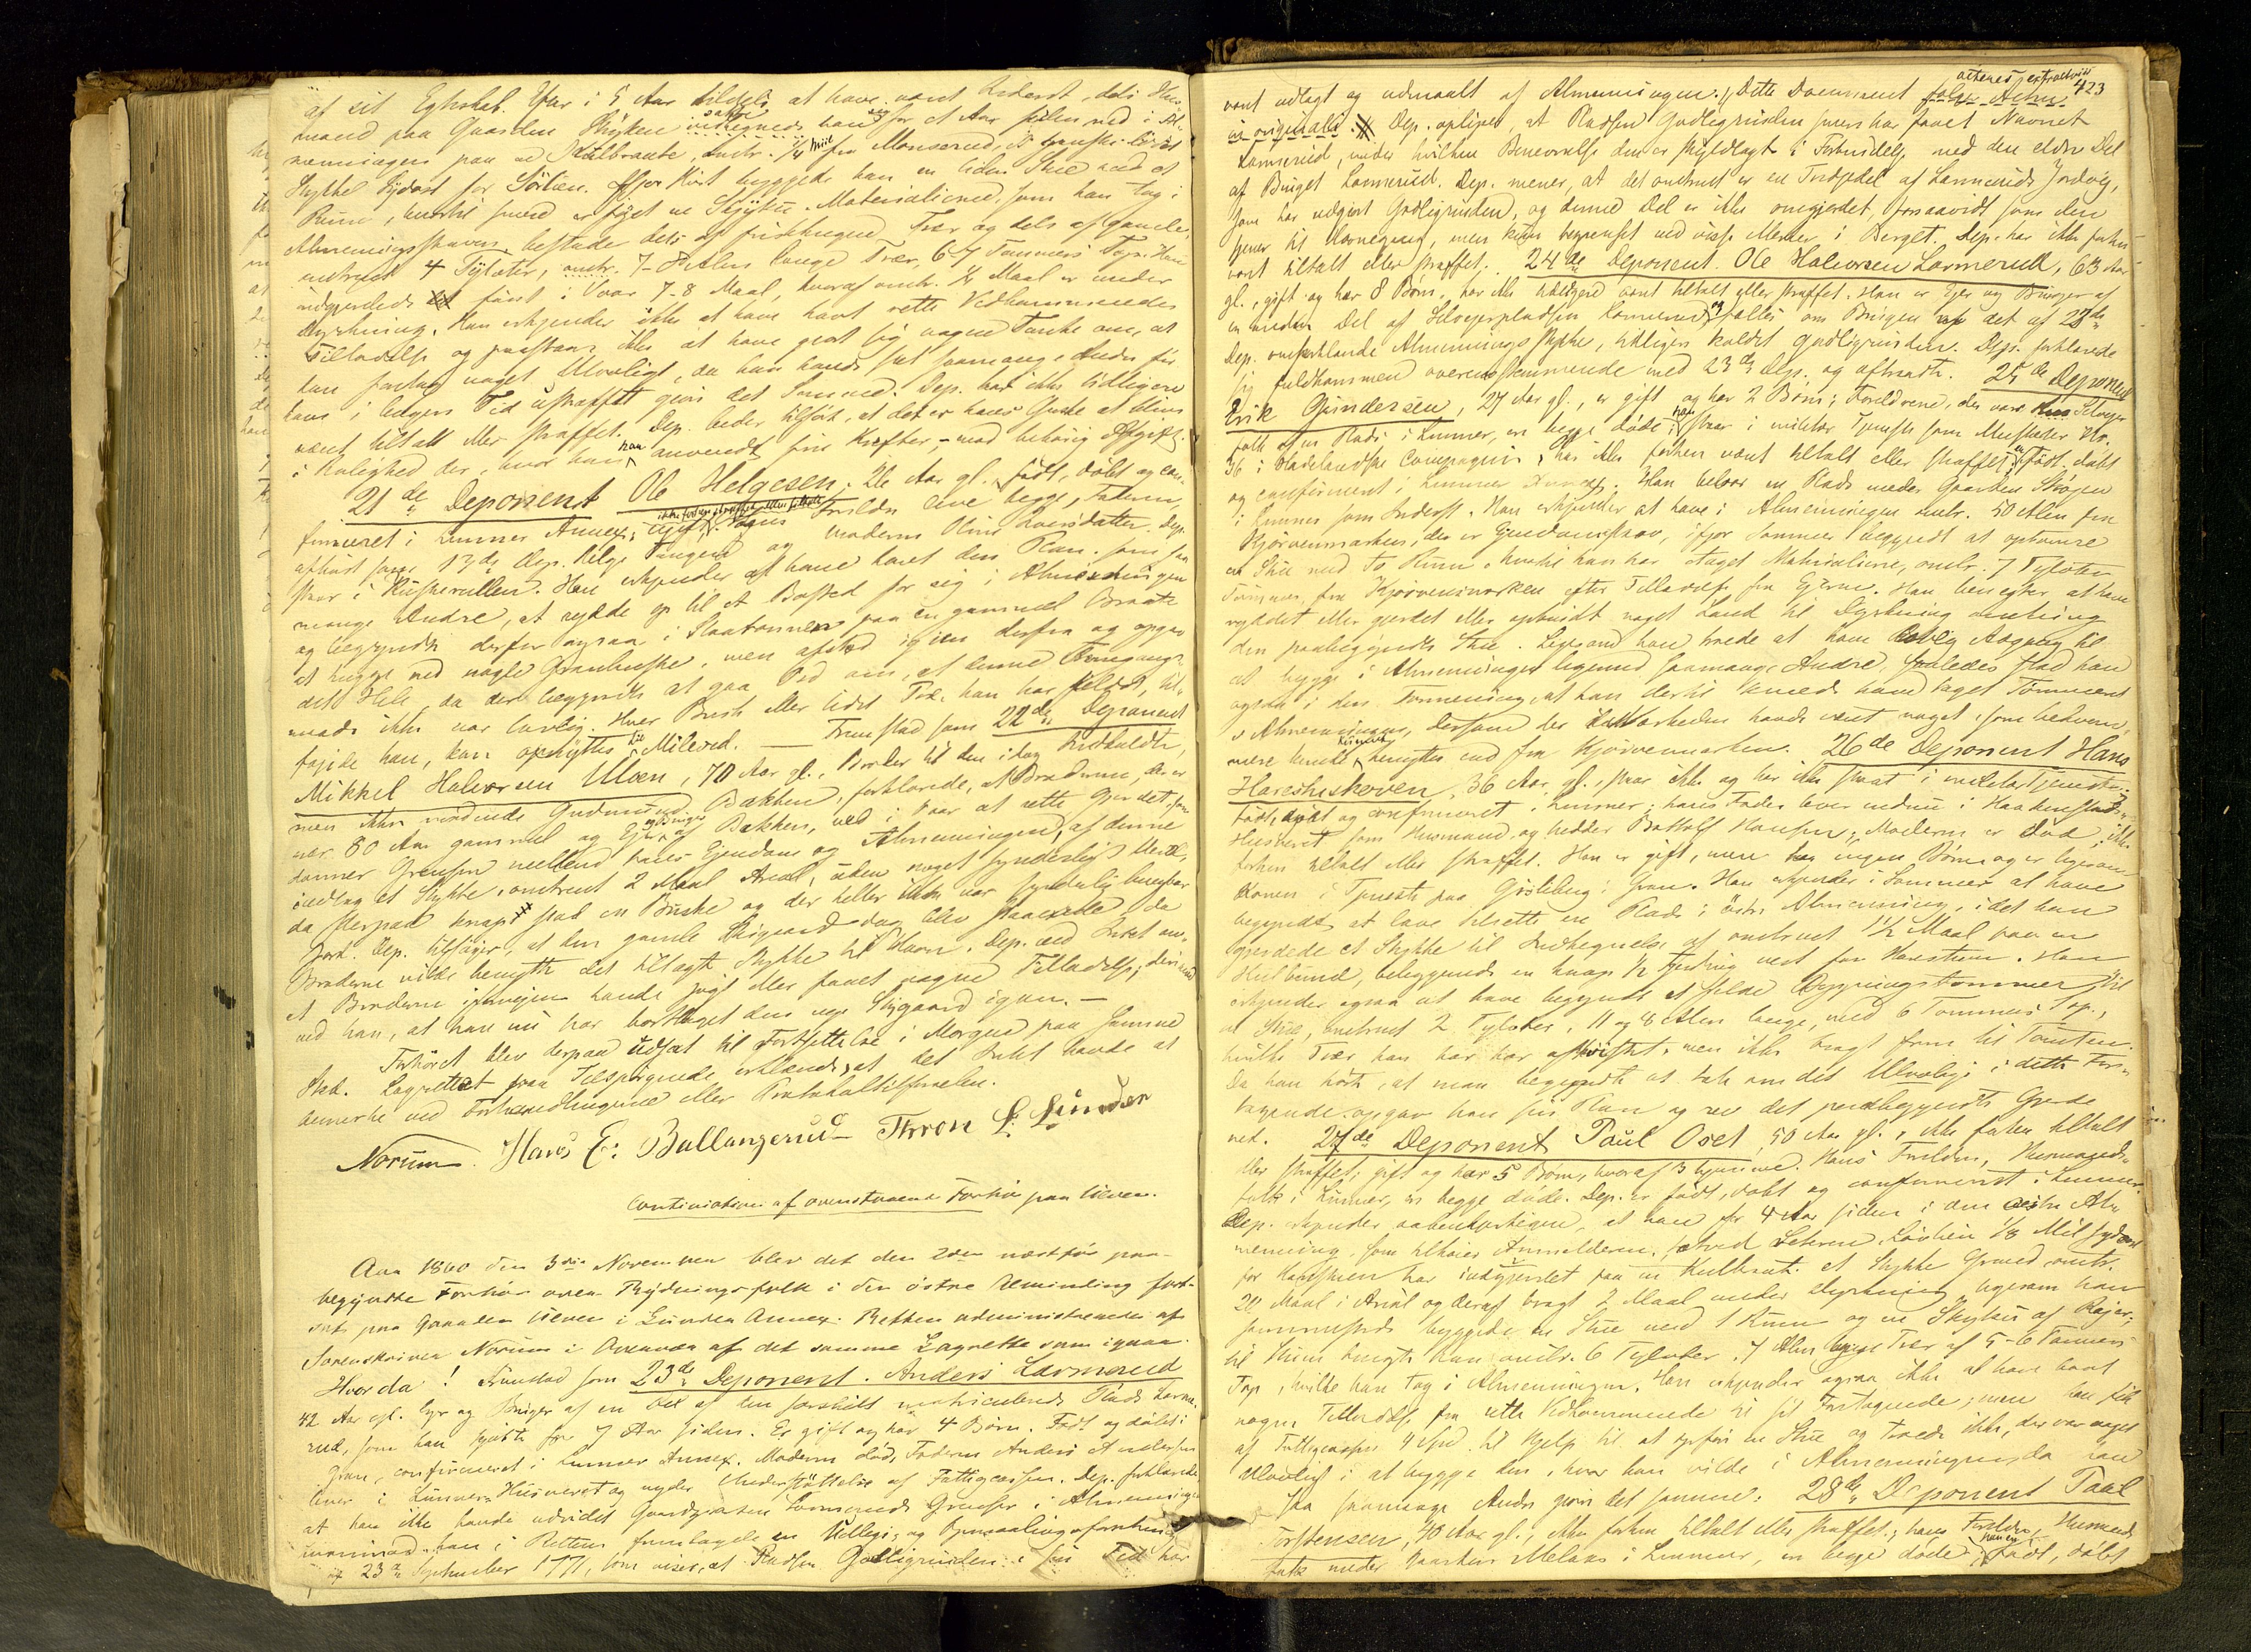 af sit Egteskab. Efter i 5 Aar tildels at have været Inderst, dels Hus-
mand paa Gaarden Stryken satte han sig for et Aar siden ned i Al-
menningen paa en Kulbraate, omtr. 1/4 Miil fra Monserud, et ganske lidet
Stykke Sydost for Sörlien. Ifjor Höst byggede han en liden Stue med et
Rum, hvortil senere er föiet en Skykue. Materialierne, som han tog i
Almenningsskoven, bestode dels af friskhugne Træer og dels af gamle,
omtrent 4 Tylvter, omtr. 7-8 Alen lange Træer, 6-7 Tommers Top. Han
indgjerdede först i Vaar 7-8 Maal, hvoraf omtr. 1/4 Maal er under
Dyrkning. Han erkjender ikke at have havt rette Vedkommendes
Tilladelse og paastaar ikke at have gjort sig nogen Tanke om, at
han foretog noget Ulovligt, da han havde seet saamange Andre för
ham i lengere Tid ustraffet gjöre det Samme. Dep. har ikke tidligere
været tiltalt eller straffet. Dep. beder tilfört, at det er hans Önske at blive
i Rolighed der, hvor han har anvendt sine Kræfter, mod behörig Afgift.
21de Deponent Ole Helgesen, 26 Aar gl., födt, döbt og con-
firmeret i Lunner Annex, ugift, ikke forhen straffet eller tiltalt. Forældre leve begge, Faderen
afhört som 17de Dep. Helge Tangen og Moderen Oline Larsdatter. Dep.
staar i Reserverullen. Han erkjender at have havt den Plan, som saa
mange Andre, at rydde op til et Bosted for sig i Almenningen
og begyndte derfor ogsaa i Slaatbonnen paa en gammel Braate
at hugge ned nogle Granbuske, men afstod igjen derfra og opgav
det Hele, da der begyndte at gaa Ord om, at denne Fremgangs-
maade ikke var lovlig. Hver Busk eller lidet Træ, han har fældet, til-
föiede han, kan opnyttes til Mileved. — Fremstod som 22de Deponent
Mikkel Halvorsen Ulven, 70 Aar gl., Broder til den idag Indkaldte,
men ikke mödende Gudmund Bakken, forklarede, at Broderen, der er
nær 80 Aar gammel og Eier og Bruger af Bakken, ved i Vaar at sætte Gjerdet, som
danner Grensen mellem hans Ejendom og Almenningen, af denne
indtog et Stykke, omtrent 2 Maal Areal, uden noget synderligt Værd,
da derpaa knapt stod en Buske og der heller ikke var synderlig brugbar
Jord. Dep. tilföier, at den gamle Skigaard dog blev staaende da
Broderen vilde benytte det tiltagte Stykke til Havn. Dep. ved Intet om,
at Broderen iforveien havde sögt eller faaet nogen Tilladelse; derimod
ved han, at han nu har borttaget den nye Skigaard igjen. —
Forhöret blev derpaa udsat til Fortsættelse i Morgen paa samme
Sted. Lagrettet paa Tilspörgende erklærede, at det Intet havde at
bemerke ved Forhandlingerne eller Protokoltilförselen.
Norum. Hans E: Ballangerud Thron L. Lunder
Continuation af ovenstaaende Forhör paa Ulven.
Aar 1860 den 3die November blev det den 2den næstför paa-
begyndte Forhör over Rydningsfolk i den östre Alminding fort-
sat paa Gaarden Ulven i Lunder Annex. Retten administreredes af
Sorenskriver Norum i Overvær af det samme Lagrette som igaar.
Hvorda! Fremstod som 23de Deponent. Anders Larmerud
42 Aar gl. Eier og Bruger af en Del af den særskilt matriculerede Plads Larme-
rud, som han kjöbte for 7 Aar siden. Er gift og har 4 Börn. Födt og döbt i
Gran, confirmeret i Lunner Annex. Moderen död, Faderen Anders Andersen
lever i Lunners Husveret og nyder Understöttelse af Fattigcassen. Dep. forklarede
at han ikke havde udvidet Larmeruds Grenser i Almenningen
han i Retten fremlagde en Udlægs- og Opmaalingsforretning
af 23de September 1771, som viser, at Pladsen Godligrinden i sin Tid har
423
været udlagt og udmaalt af Almenningen. Dette Document fölger Acten
in originali. Dep. oplyser, at Pladsen Godligrinden senere har faaet Navnet
Larmerud, under hvilken Benevnelse den er skyldlagt i Forbindelse med den eldre Del
af Bruget Larmerud. Dep. mener, at det omtrent er en Tredjedel af Larmeruds Jordvej,
som har udgjort Godligrinden, og denne Del er ikke omgjerdet, forsaavidt som den
tjener til Havnegang, men kun begrenset ved visse Merker i Berget. Dep. har ikke forhen
været tiltalt eller straffet. 24de Deponent. Ole Halvorsen Larmerud, 63 Aar
gl., gift og har 8 Börn, har ikke tidligere været tiltalt eller straffet. Han er Ejer og Bruger af
en anden Del af Selvejerpladsen Larmerud og fælles om Brugen af det af 23de
Dep. omforklarede Almenningsstykke, tidligere kaldet Godligrinden. Dep. forklarede
sig fuldkommen overensstemmende med 23de Dep. og aftraadte. 25de Deponent
Erik Gundersen, 27 Aar gl., er gift og har 2 Börn; Forældrene, der vare
folk paa en Plads i Lunner, ere begge döde; han staar i militær Tjeneste som Musketer No.
36 i Hadelandske Compagnie, har ikke forhen været tiltalt eller straffet; er födt, döbt
og confirmeret i Lunner Annex. Han beboer en Plads under Gaarden Skögen
i Lunner som Inderst. Han erkjender at have i Almenningen omtr. 50 Alen fra
Kjörvenmarken, der er Ejendomsskov, ifjor Sommer begyndt at optömre
en Stue med To Rum, hvortil han har taget Materialierne, omtr. 7 Tylvter
Tömmer, fra Kjörvenmarken efter Tilladelse fra Ejerne. Han benegter at have
ryddet eller gjerdet eller opbrudt noget Land til Dyrkning omkring
den paabegyndte Stue. Ligesom han troede at have lovlig Adgang til
at bygge i Almenningen ligesom saamange Andre, saaledes stod han
ogsaa i den Formening, at han dertil kunde have taget Tömmeret
i Almenningen, dersom der i Nærheden havde været noget, som bekvem-
mere kunde benyttes end fra Kjörvenmarken. 26de Deponent Hans
Haresteskoven, 36 Aar gl., staar ikke og har ikke staaet i militærtjeneste;
födt, döbt og confirmeret i Lunner; hans Fader lever endnu i Haakenstad-
Husveret som Husmand og hedder Botholf Hansen; Moderen er död, ikke
forhen tiltalt eller straffet. Han er gift, men har ingen Börn og er ligesom
Konen i Tjeneste paa Gisleberg i Gran. Han erkjender i Sommer at have
begyndt at lave tilrette en Plads i östre Almenning, idet han
gjerdede et Stykke til Indhegnelse af omtrent 1 1/2 Maal paa en
Kulbund, beliggende en knap 1/2 Fjerding vest fra Harestuen. Han
erkjender ogsaa at have begyndt at fælde Bygningstömmer til
en Stue, omtrent 2 Tylvter, 11 og 8 Alen lange, med 6 Tommers Top,
hvilke Træer han har afkvistet, men ikke bragt frem til Tomten.
Da han hörte, at man begyndte at tale om det Ulovlige i dette Fore-
tagende, opgav han sin Plan og rev det paabegyndte Gjerde
ned. 27de Deponent Paul Oset, 50 Aar gl., ikke forhen tiltalt
eller straffet; gift og har 5 Börn, hvoraf 3 hjemme. Hans Forældre, Husmands-
folk i Lunner, ere begge döde. Dep. er födt, döbt og confirmeret i Lunner.
Dep. erkjender aabenhjertigen, at han for 4 Aar siden i den östre Al-
menning, som tilhörer Anmelderen, 1/8 Mil sydost
for Harestuen har indgjerdet paa en Kulbund et Stykke Grund omtr.
20 Maal i Areal og deraf bragt 2 Maal under dyrkning, ligesom han
sammesteds byggede en Stue med 1 Rum og en Skykue af Rajer;
til Stuen brugte han omtr. 6 Tylvter 7 Alen lange Træer af 5-6 Tommers
Top, hvilke han tog i Almenningen. Han erkjender ogsaa ikke at have havt
nogen Tilladelse fra rette Vedkommende til sit Foretagende; men han fik
af Fattigcassen 4 Spd. til Hjelp til at opföre en Stue og troede ikke, der var noget
Ulovligt i at bygge den, hvor han vilde i Almenningen, da han
saa saamange Andre gjöre det samme. 28de Deponent Paul
Torstensen, 40 Aar gl., ikke forhen tiltalt eller straffet; hans Forældre, Husmands-
folk under Gaarden Melaas i Lunner, er begge döde; han er födt, döbt